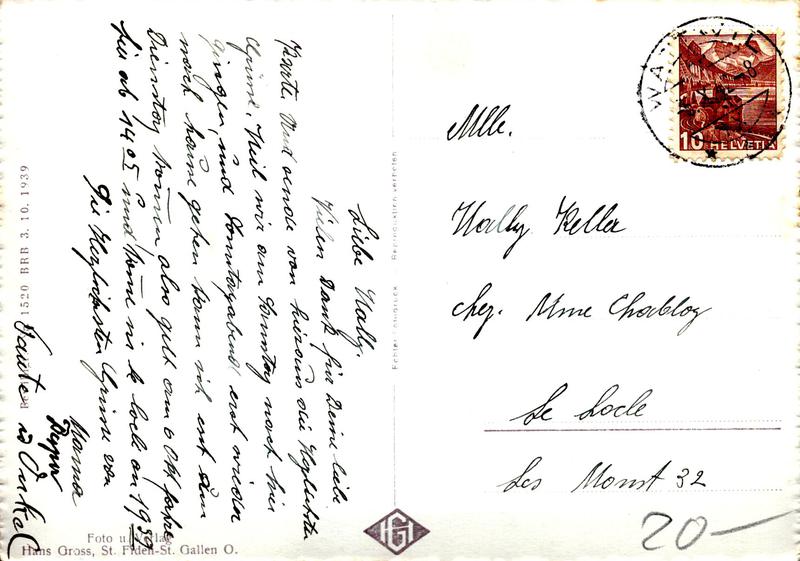 Liebe Wally.
Vielen Dank für Deine liebe
Karte. Und sende von hieraus die Herzlichsten
Grüsse. Weil wir am Sonntag nach hier
gingen, und Sonntagabend erst wieder
nach hause gehen kann ich erst am
Dienstag kommen also geht am 6 Okt fahre
hier ab 14 05 und komme in le Locle an 19 39
Die Herzlichsten Grüsse von
Mama
Tante u Onkel
1520 BRB 3. 10. 1939
Foto u. Verlag
Hans Gross, St. Fiden-St. Gallen O.
Echter Photodruck Reproduktion verboten
HG
Mlle.
Wally Keller
chez. Mme Chabloz
Le Locle
Les Monst 32
20-
10 HELVETIA